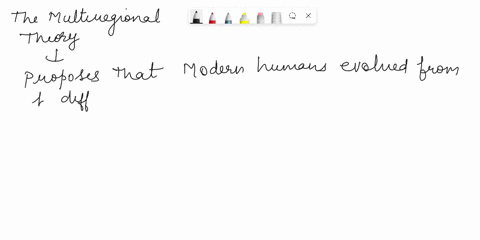 The Multiregional
Theory
↓
Proposes that Modern humans evolved from
diff